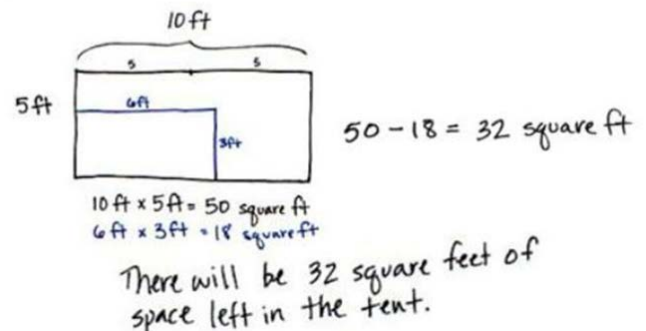 10 ft
5 5
5 ft
6ft
3ft
50 - 18 = 32 square ft
10 ft x 5 ft = 50 square ft
6 ft x 3 ft = 18 square ft
There will be 32 square feet of
space left in the tent.